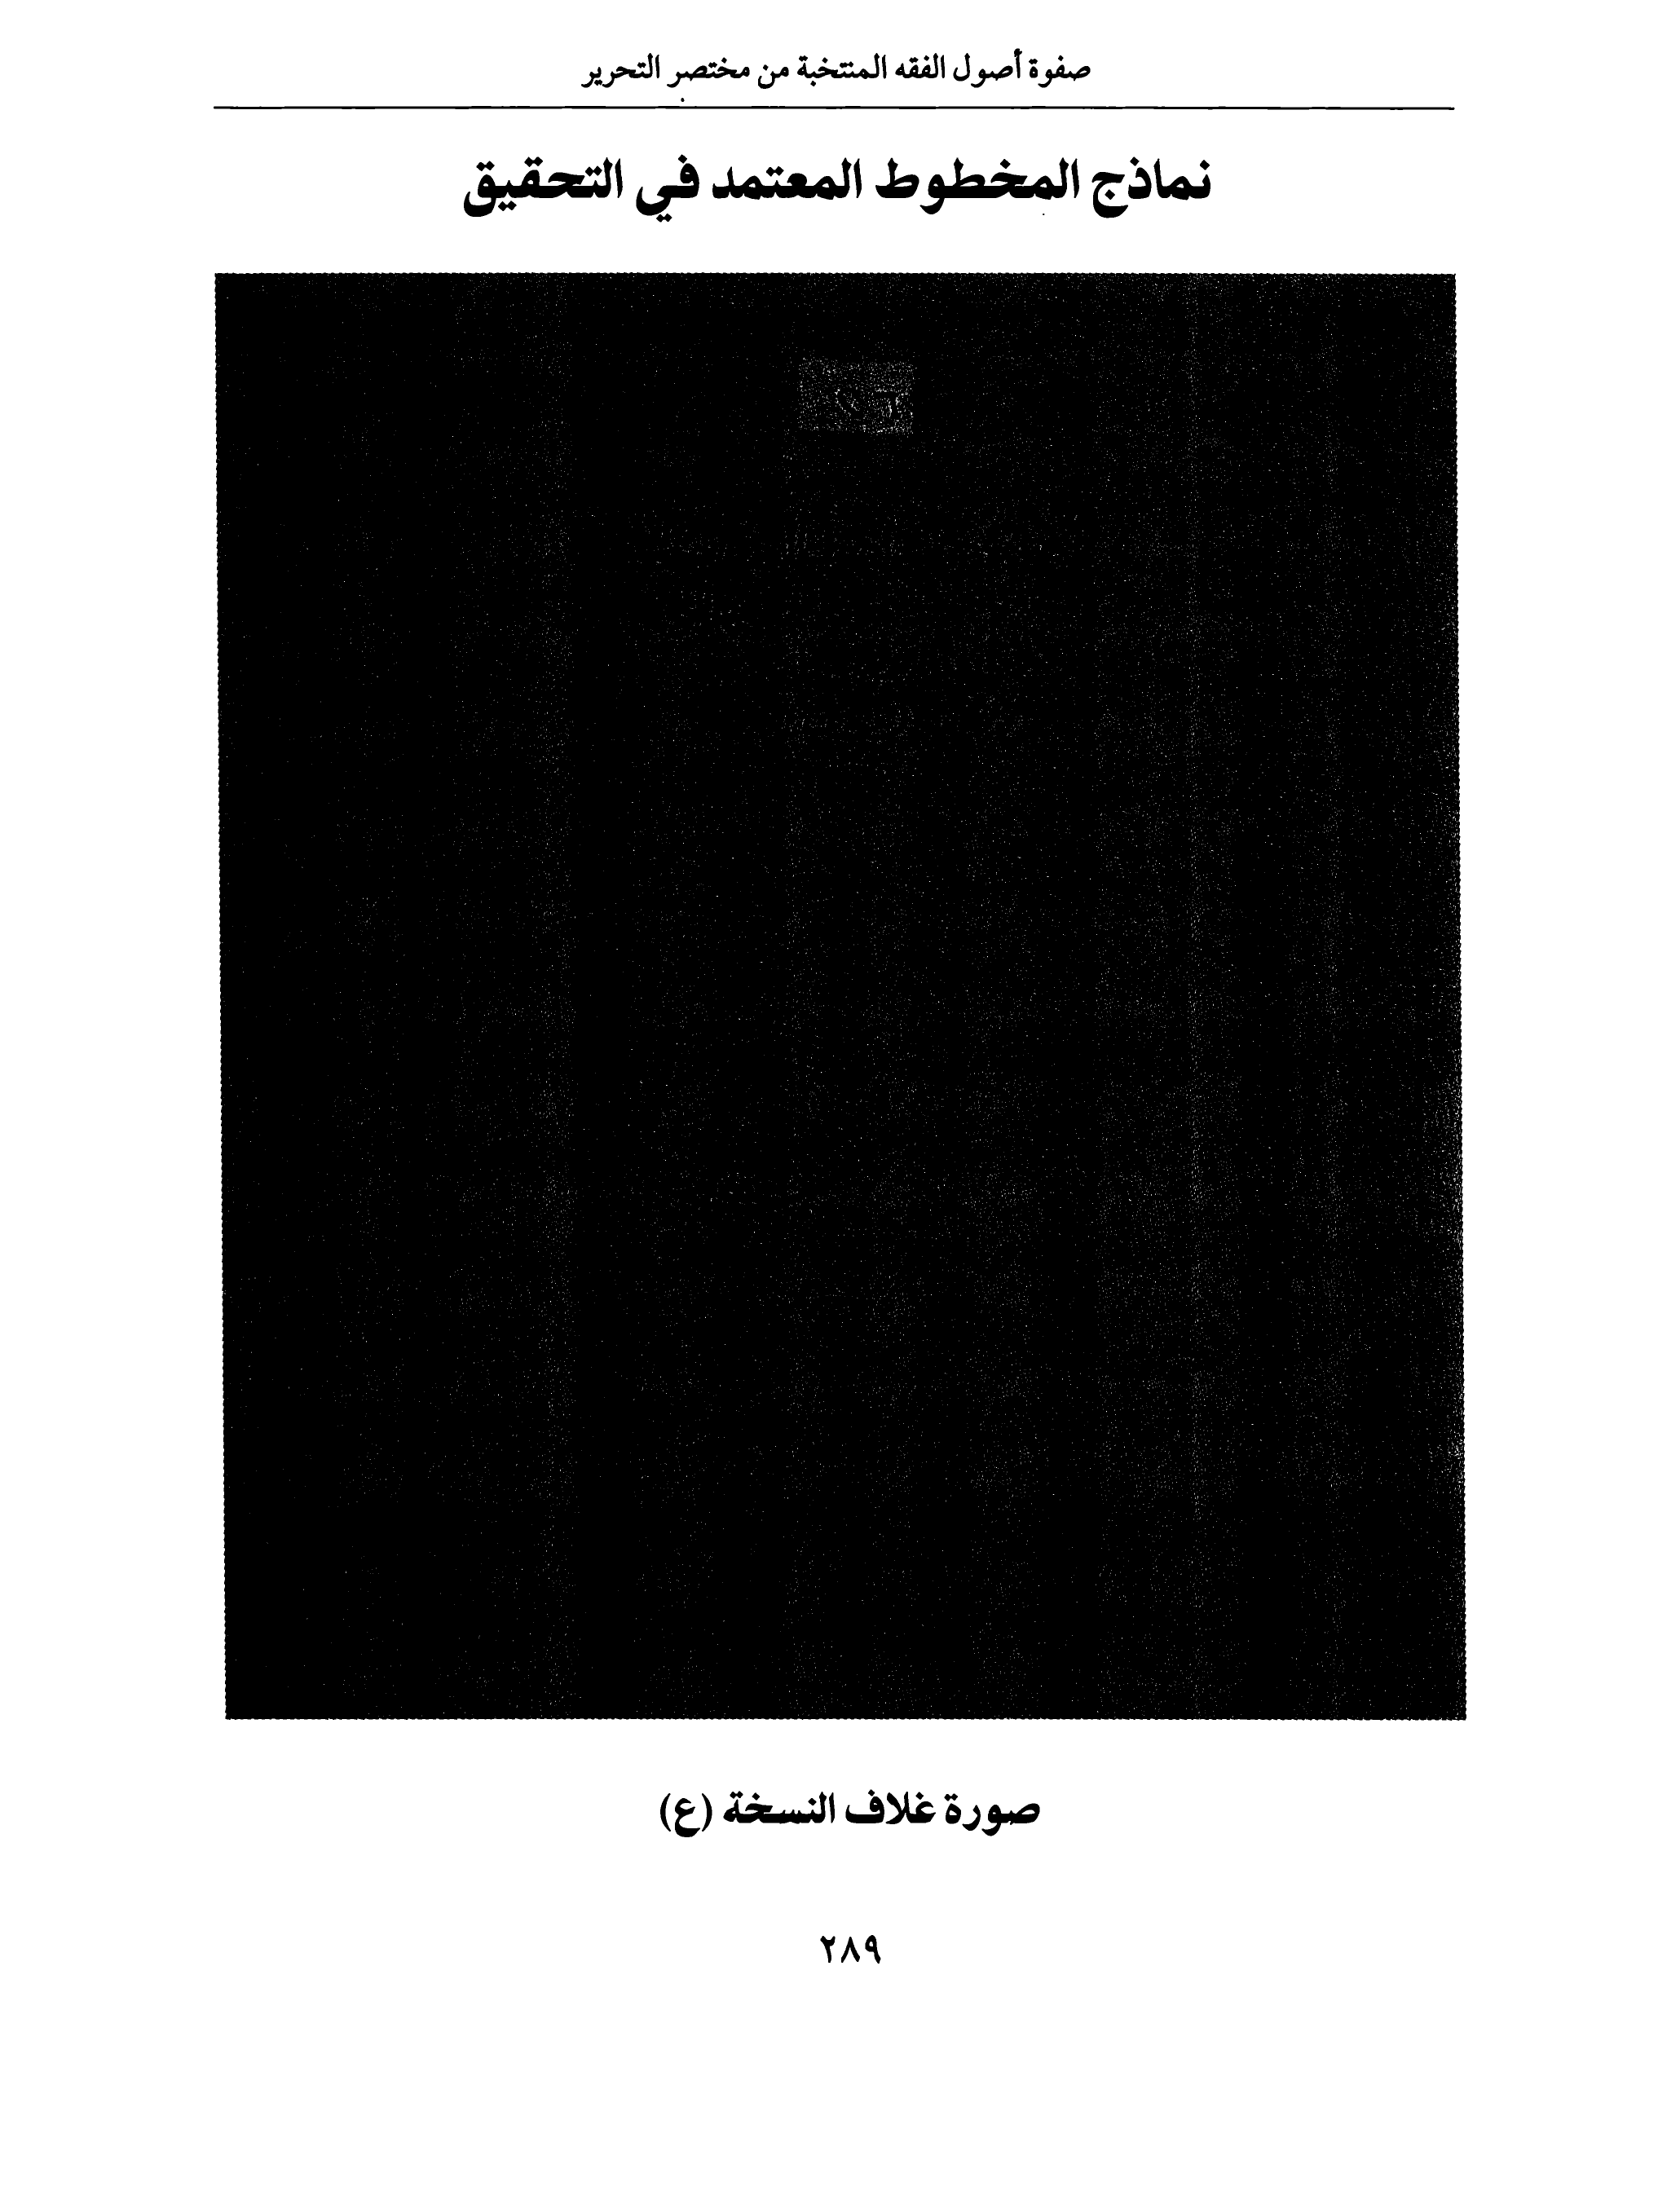 صفوة أصول الفقه المنتخبة من مختصر التحرير
نماذج المخطوط المعتمد في التحقيق
صورة غلاف النسخة (ع)
٢٨٩